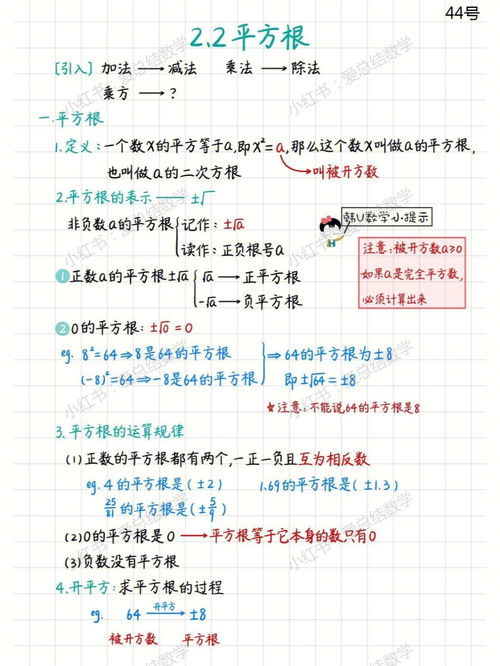 44号
2.2平方根
[引入] 加法 → 减法 乘法 → 除法
乘方 → ?
一.平方根
1.定义:一个数X的平方等于a,即X²=a,那么这个数X叫做a的平方根,
也叫做a的二次方根 → 叫被开方数
2.平方根的表示 —— ±√
非负数a的平方根 { 记作: ±√a
读作: 正负根号a
韩U数学小提示
注意:被开方数a≥0
如果a是完全平方数,
必须计算出来
①正数a的平方根±√a { √a → 正平方根
-√a → 负平方根
②0的平方根: ±√0=0
eg. 8²=64⇒8是64的平方根 } ⇒64的平方根为±8
(-8)²=64⇒-8是64的平方根 即±√64=±8
★注意:不能说64的平方根是8
3.平方根的运算规律
(1)正数的平方根都有两个,一正一负且互为相反数
eg.4的平方根是(±2) 1.69的平方根是(±1.3)
25/81的平方根是(±5/9)
(2)0的平方根是0 → 平方根等于它本身的数只有0
(3)负数没有平方根
4.开平方:求平方根的过程
eg. 64 开平方→ ±8
被开方数 平方根
小红书:爱总结数学
小红书:爱总结数学
小红书:爱总结数学
小红书:爱总结数学
小红书:爱总结数学
小红书:爱总结数学